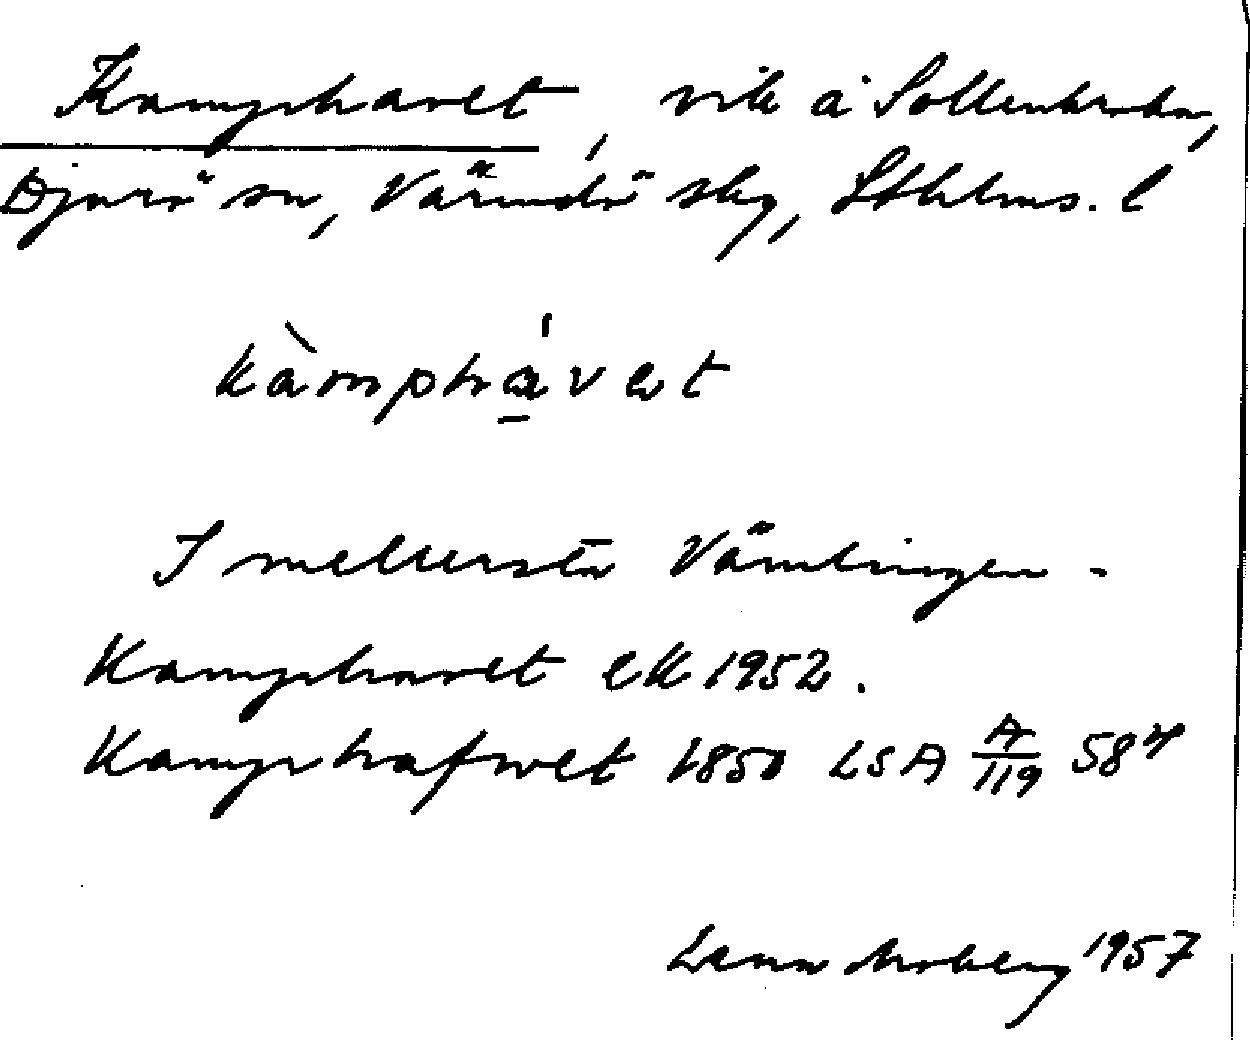 Kamphavet, vik å Sollenkroka,
Djurö sn, Värmdö skg, Sthlms. l
kàmphа́vet
I mellersta Vämlingen -
Kamphavet ek 1952.
Kamphafvet 1850 LSA A/119 58
Lena Moberg 1957